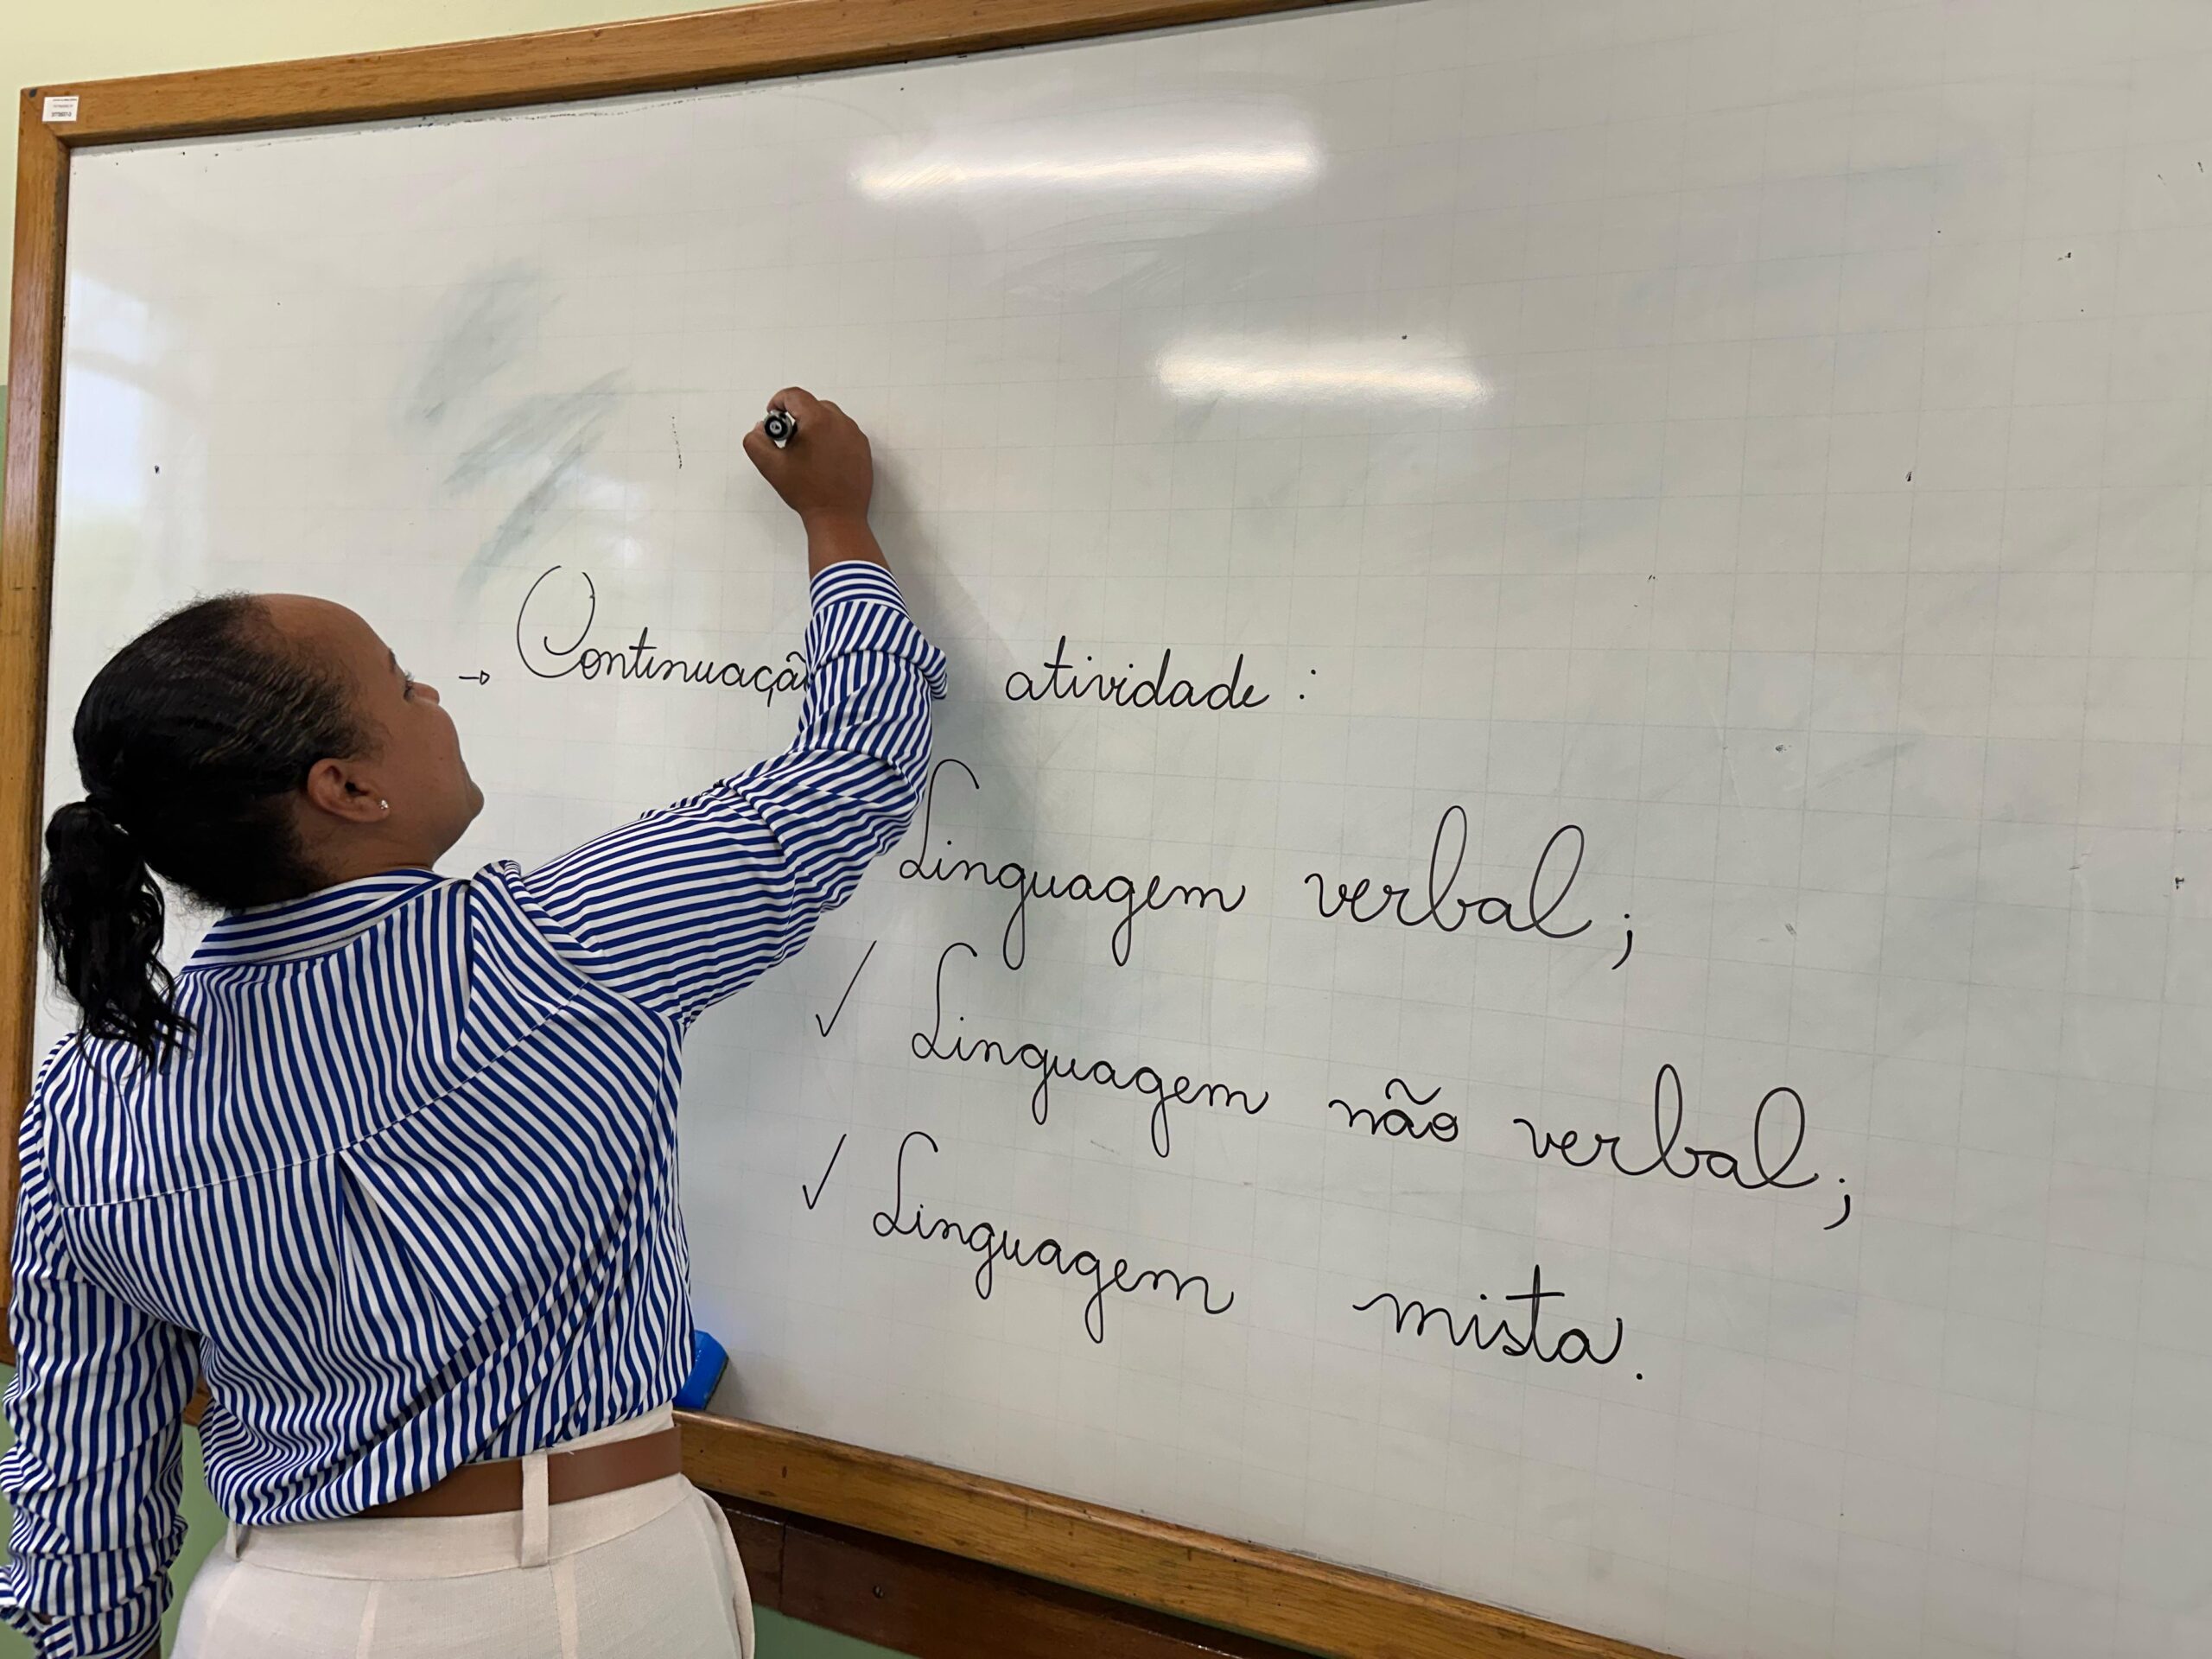 → Continuação atividade :
Linguagem verbal ;
✓ Linguagem não verbal ;
✓ Linguagem mista .